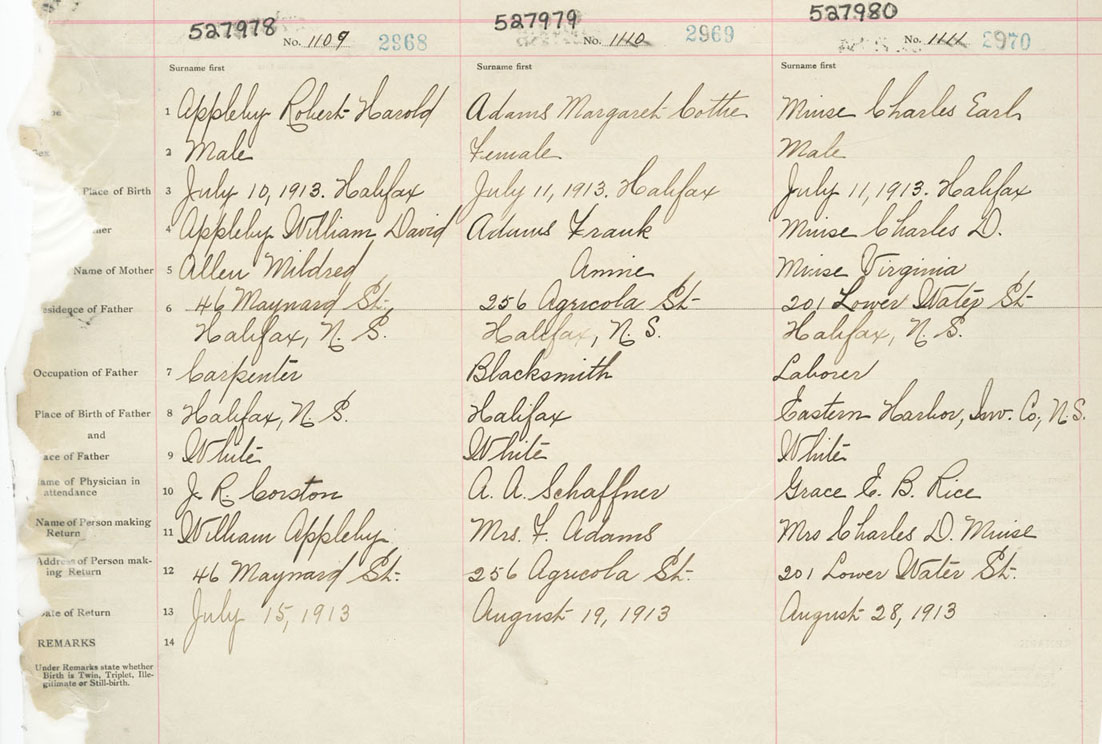 527978 527979 527980
No. 1109 2968 No. 1110 2969 No. 1111 2970
Surname first Surname first Surname first
1 Appleby Robert Harold Adams Margaret Muise Charles Earl
Sex 2 Male Female Male
Place of Birth 3 July 10, 1913. Halifax July 11, 1913. Halifax July 11, 1913. Halifax
4 Appleby William David Adams Frank Muise Charles D.
Name of Mother 5 Allen Mildred Annie Muise Virginia
esidence of Father 6 46 Maynard St. 256 Agricola St. 201 Lower Water St.
Halifax, N. S. Halifax, N. S. Halifax, N. S.
Occupation of Father 7 Carpenter Blacksmith Laborer
Place of Birth of Father 8 Halifax, N. S. Halifax Eastern Harbor, Inv. Co, N. S.
and
ace of Father 9 White White White
ame of Physician in
attendance 10 J. R. Corston A. A. Schaffner Grace E. B. Rice
Name of Person making
Return 11 William Appleby Mrs. F. Adams Mrs Charles D. Muise
Address of Person mak-
ing Return 12 46 Maynard St. 256 Agricola St. 201 Lower Water St.
ate of Return 13 July 15, 1913 August 19, 1913 August 28, 1913
REMARKS 14
Under Remarks state whether
Birth is Twin, Triplet, Ille-
gitimate or Still-birth.